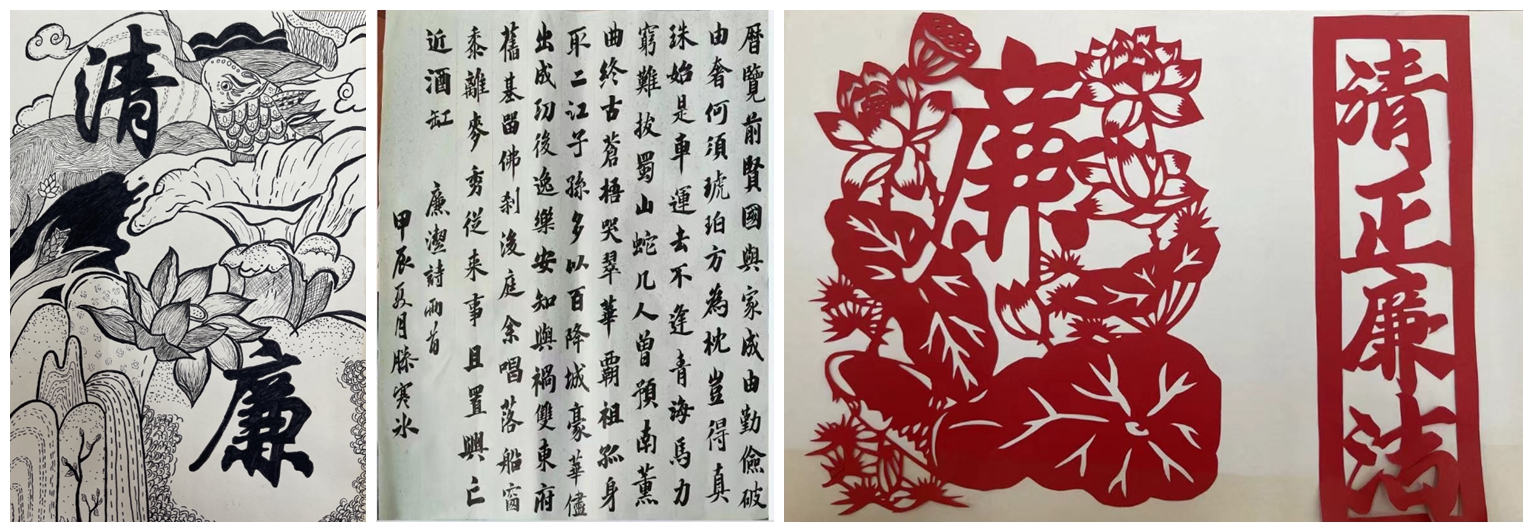 清
廉
曆覽前賢國與家成由勤儉破
由奢何須琥珀方為枕豈得真
珠始是車運去不逢青海馬力
窮難拔蜀山蛇几人曾預南薰
曲終古蒼梧哭翠華霸祖孤身
取二江子孫多以百降城豪華儘
出成功後逸樂安知與禍雙東府
舊基畱佛刹後庭余唱落船窗
黍離麥秀從来事且置興亡
近酒缸 廉潔詩兩首
甲辰夏月滕寒冰
廉
清正廉洁